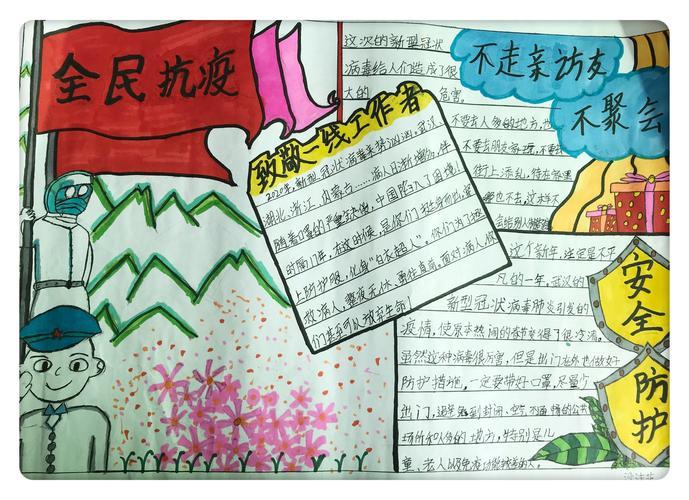 全民抗疫
这次的新型冠状
病毒给人们造成了很
大的 危害。
不走亲访友
不聚会
不要去人多的地方,也
不要去朋友家里,不要去
街上添乱,待在家里
哪也不去,这才不
致敬一线工作者
2020年,新型冠状病毒来势汹汹,武汉
湖北、浙江、内蒙古……病人日渐增多,伴
随着口罩的严重缺少,中国陷入了困境!
的隔门年,在这时候,是你们挺身而出,穿
上防护服,化身"白衣超人"。你们为了拯
救病人,整夜无休,勇往直前。面对病人,你
们甚至可以放弃生命!
这个新年,注定是不平
凡的一年。武汉的
新型冠状病毒肺炎引发的
疫情,使原本热闹的春节变得了很冷清。
虽然这种病毒很厉害,但是出门在外也做好
防护措施,一定要带好口罩,尽量少
出门,避免到封闭、空气不流通的公共
场所和人多的地方,特别是儿
童、老人以及免疫功能较差的人。
安全
防护